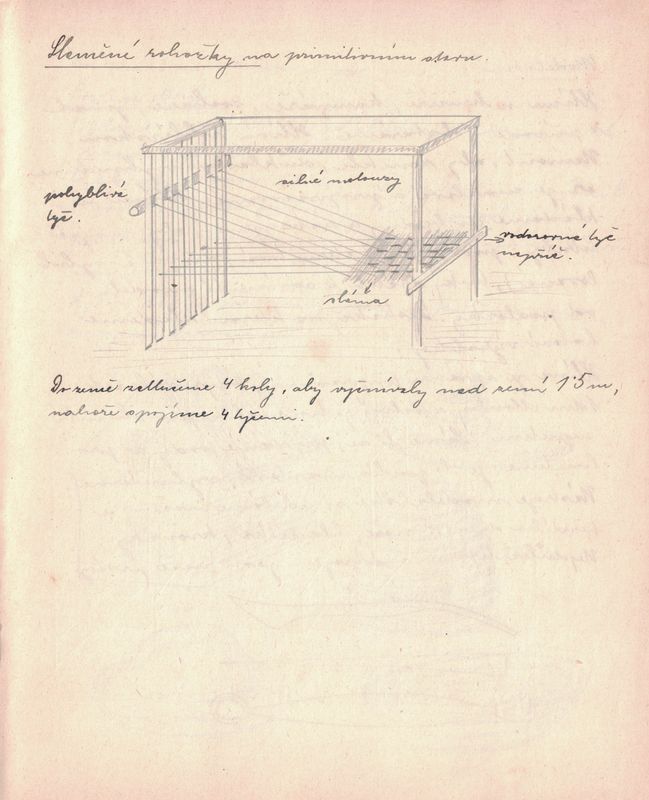 Slaměné rohožky na primitivním stavu.
silné motouzy
pohyblivá
tyč.
vodorovná tyč
napříč.
sláma
Do země zatlučeme 4 koly, aby vyčnívaly nad zemí 1·5 m,
nahoře spojíme 4 tyčemi.